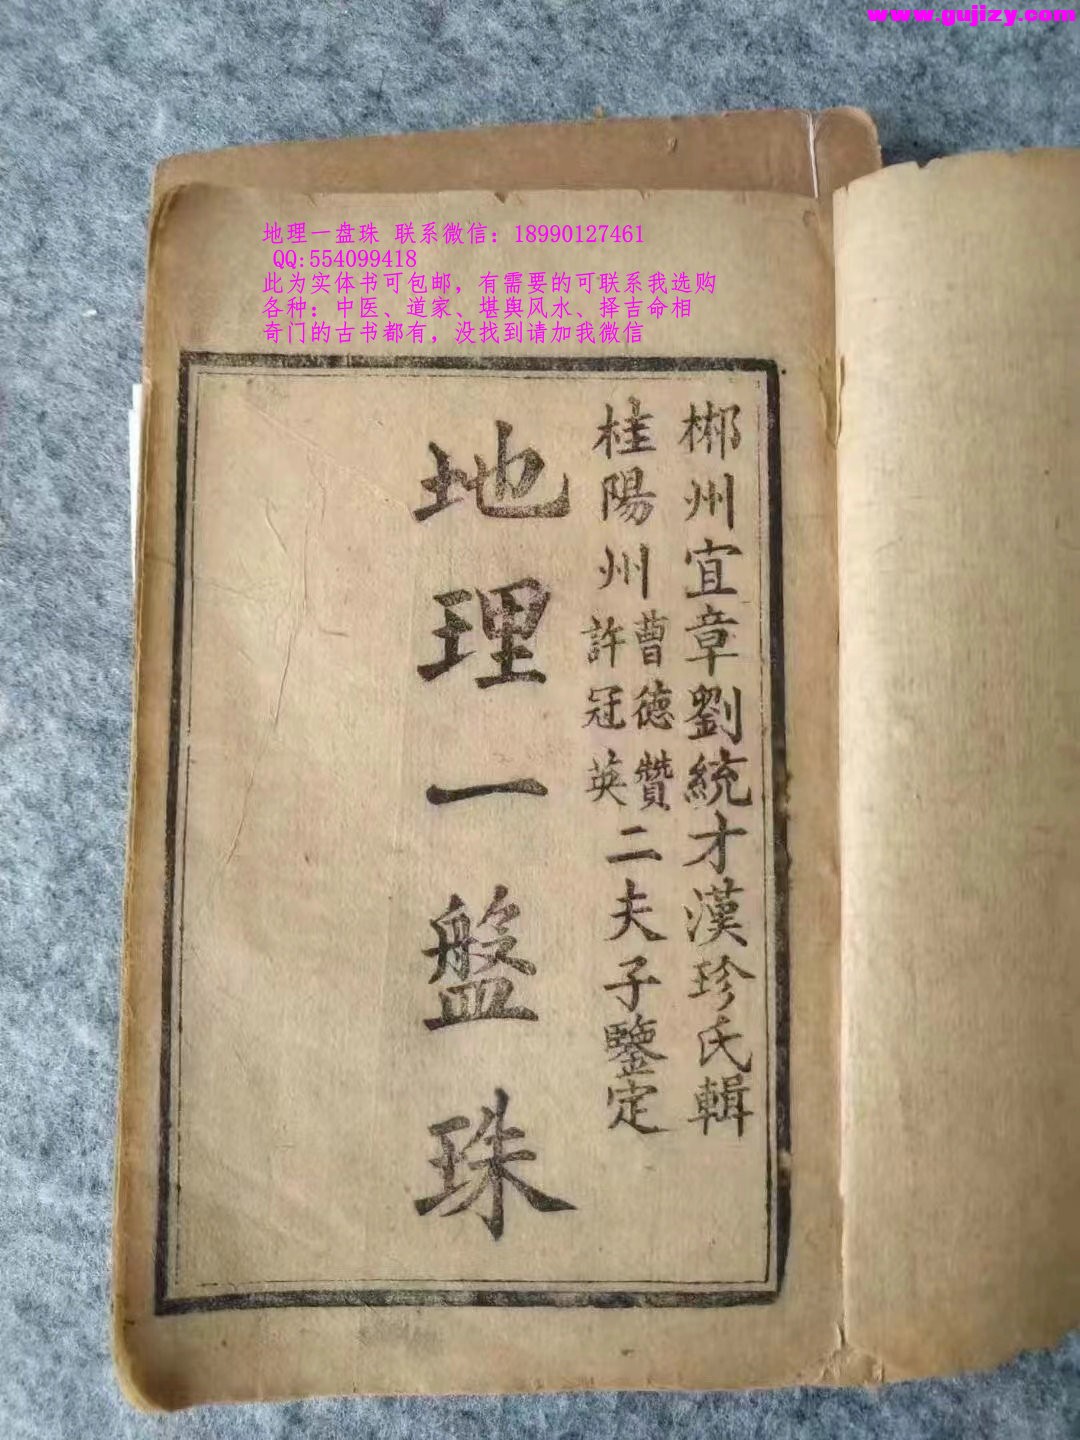 www.gujizy.com
地理一盘珠 联系微信：18990127461
QQ:554099418
此为实体书可包邮，有需要的可联系我选购
各种：中医、道家、堪舆风水、择吉命相
奇门的古书都有，没找到请加我微信
郴州宜章劉統才漢珍氏輯
桂陽州曹德贊許冠英二夫子鑒定
地理一盤珠